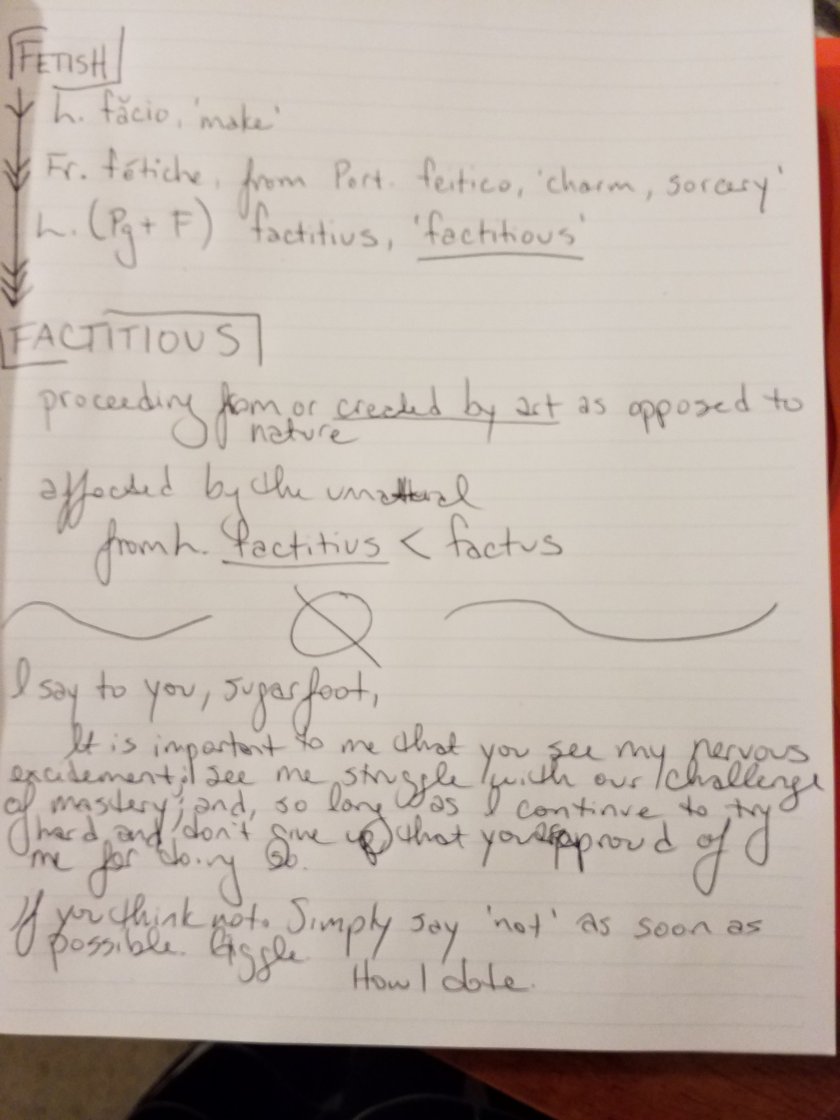 FETISH
L. făcio, 'make'
Fr. fétiche, from Port. feitico, 'charm, sorcery'
L. (Pg + F) factitius, 'factitious'
FACTITIOUS
proceeding from or created by art as opposed to
nature
affected by the unnatural
from L. factitius < factus
I say to you, sugarfoot,
It is important to me that you see my nervous
excitement; see me struggle with our challenge
of mastery; and, so long as I continue to try
hard and don't give up that you proud of
me for doing so.
If you think not. Simply say 'not' as soon as
possible. Giggle
How I date.